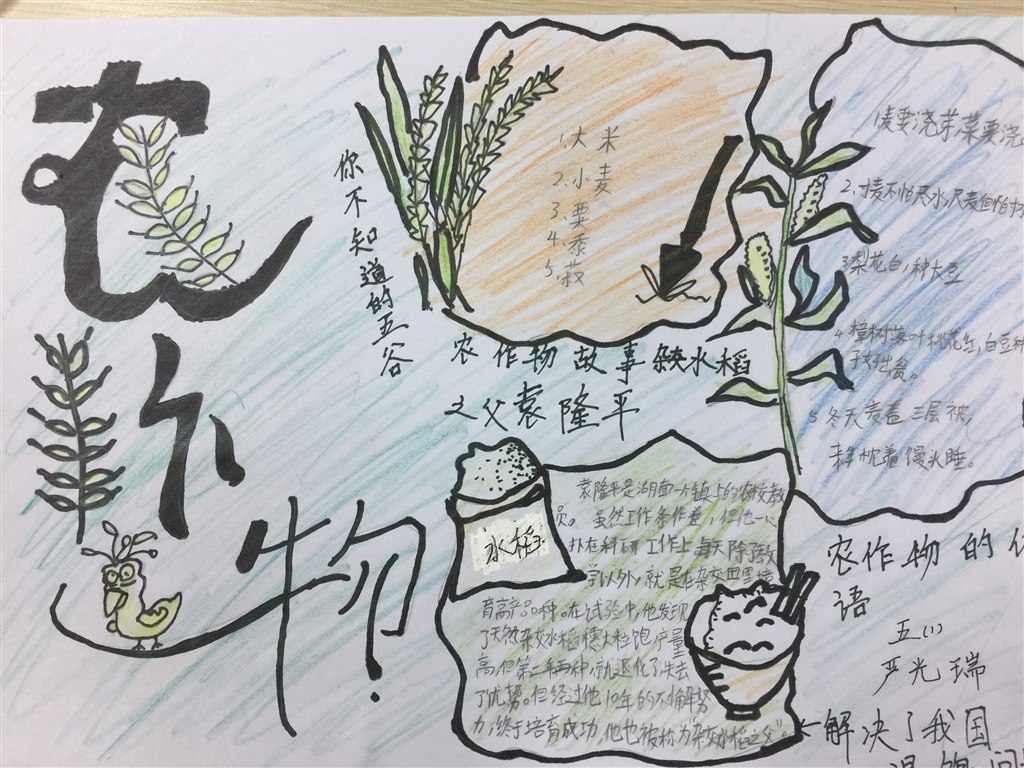 农作物
你不知道的五谷
1.大米
2.小麦
3.粟
4.黍
5.菽
农作物故事杂交水稻
之父袁隆平
水稻
袁隆平是湖南一个镇上的农校教
员。虽然工作条件差,但他一心
扑在科研工作上每天除教
学以外,就是在杂交田里培
育高产品种。在试验中,他发现
了天然杂交水稻穗大粒饱,产量
高,但第二年再种,就退化了失去
了优势。但经过他10年的不懈努
力,终于培育成功,他也被称为杂交水稻之父。
解决了我国
2.麦不怕
3.梨花白,种大豆
4.樟树落叶桃花红,白豆种
子好出瓮。
5.冬天麦盖三层被,
来年枕着馒头睡。
农作物的
语
五(1)
严光瑞